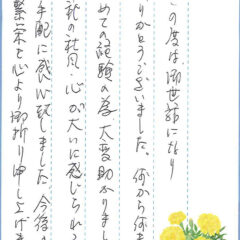 の度は御世話になり
りがとうございました。何から何ま
めての経験の為大変助かりまし
社の社風・心が大いに感じられ
手配に感心致しました今後
繁栄を心より御祈り申し上げま